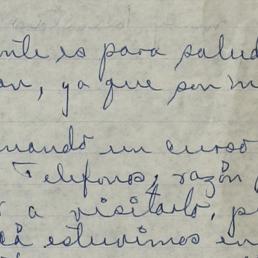 nte es para salud
an, ya que son m
mando un curso
Telefonos, razón
a visitarlo, p
cá estuvimos en